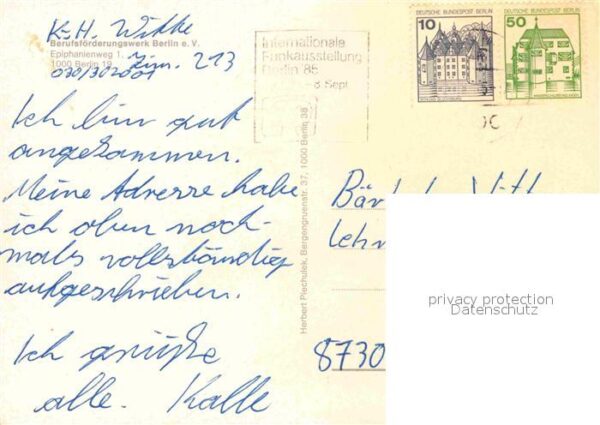 K.-H. Witke
Berufsförderungswerk Berlin e. V.
Epiphanienweg 1.
1000 Berlin 19
Zim. 213
030/302001
Internationale
Funkausstellung
Berlin 85
8 Sept
DEUTSCHE BUNDESPOST BERLIN
10
DEUTSCHE BUNDESPOST BERLIN
50
Ich bin gut
angekommen.
Meine Adresse habe
ich oben noch-
mals vollständig
aufgeschrieben.
Ich grüße
alle. Kalle
Herbert Piechulek, Bergengruenstr. 37, 1000 Berlin 38
Lehr
8730
privacy protection
Datenschutz